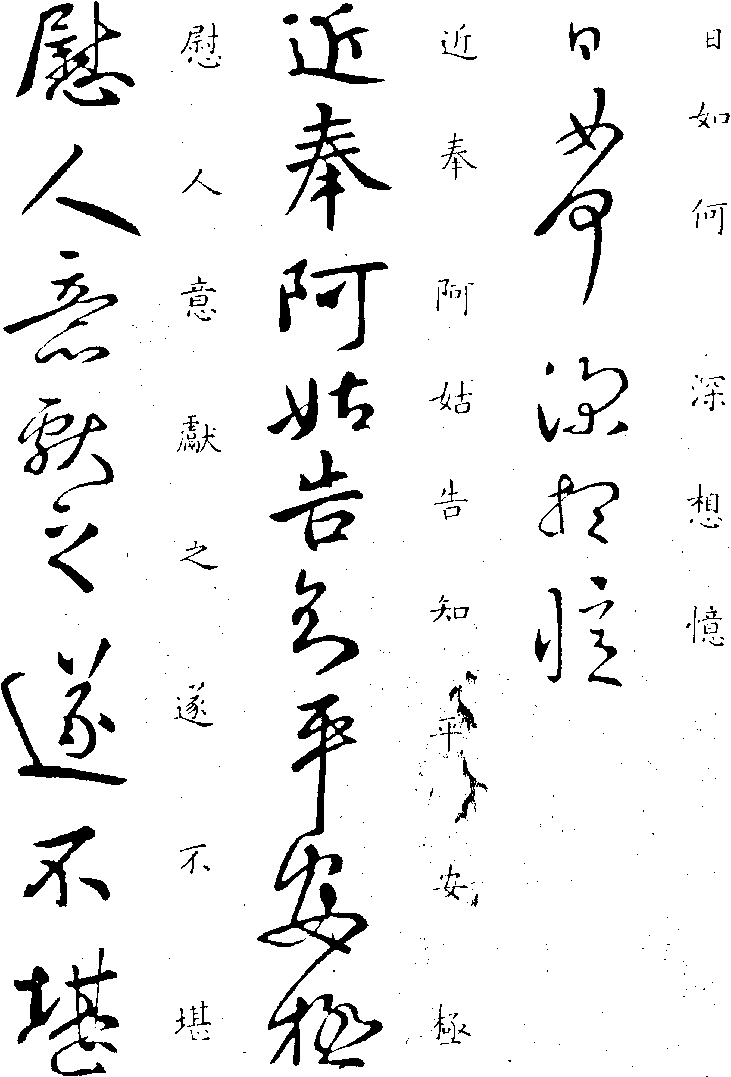 日如何 深想憶
日如何 深想憶
近奉阿姑告知平安極
近奉阿姑告知平安極
慰人意獻之遂不堪
慰人意獻之遂不堪